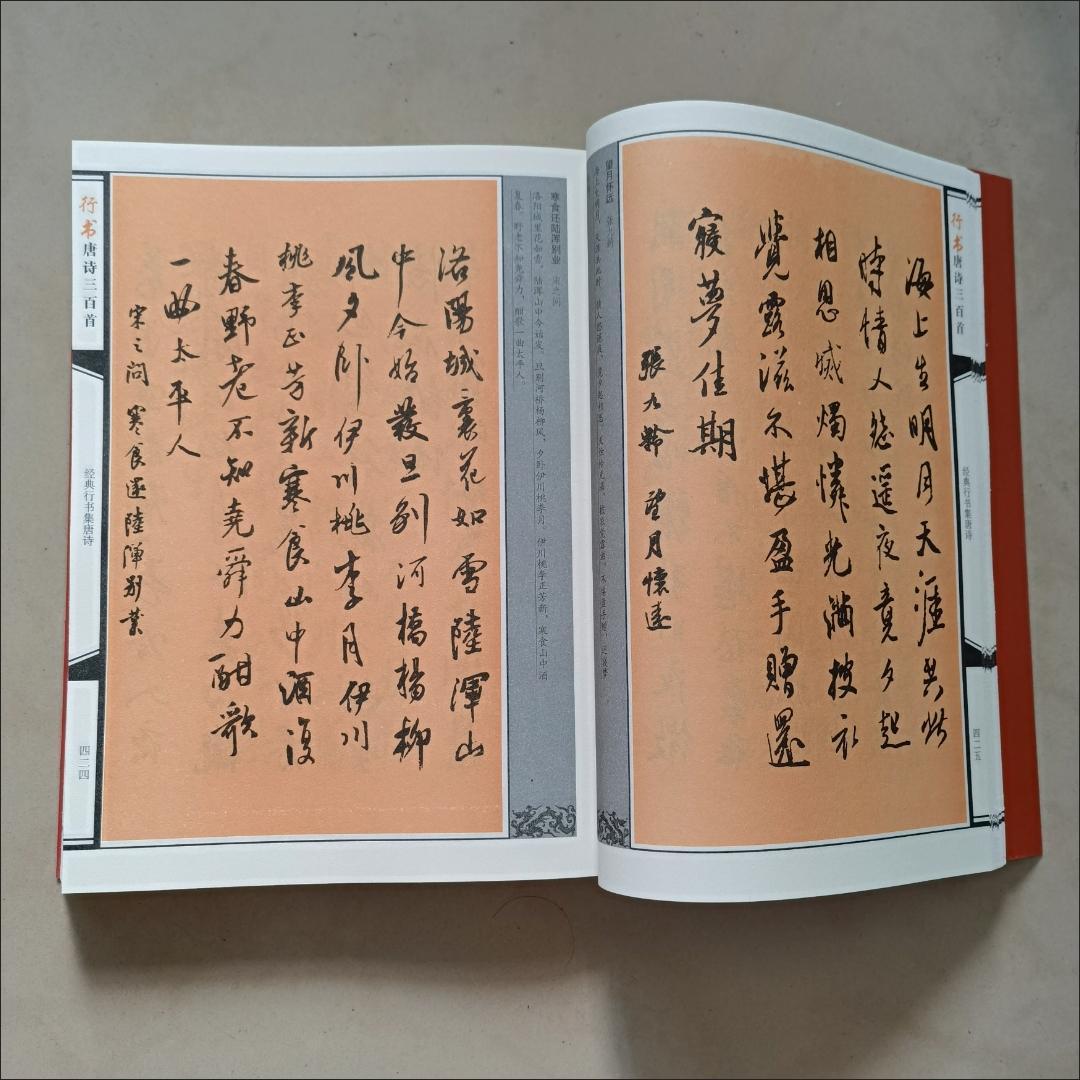 寒食还陆浑别业 宋之问
洛阳城里花如雪,陆浑山中今始发。旦别河桥杨柳风,夕卧伊川桃李月。伊川桃李正芳新,寒食山中酒
复春。野老不知尧舜力,酣歌一曲太平人。
洛陽城裏花如雪陸渾山
中今始發旦别河橋楊柳
風夕卧伊川桃李月伊川
桃李正芳新寒食山中酒復
春野老不知堯舜力酣歌
一曲太平人
宋之問 寒食還陸渾别業
行书唐诗三百首
经典行书集唐诗
四二四
行书唐诗三百首
经典行书集唐诗
四二五
海上生明月天涯共此
時情人怨遥夜竟夕起
相思滅燭憐光滿披衣
覺露滋不堪盈手贈還
寢夢佳期
張九齡 望月懷遠
望月怀远 张九龄
海上生明月,天涯共此时。情人怨遥夜,竟夕起相思。灭烛怜光满,披衣觉露滋。不堪盈手赠,还寝梦